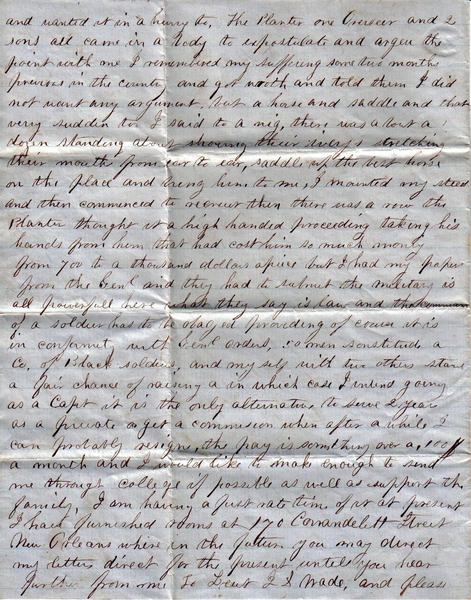 and wanted it in a hurry to, The Planter one Overseer and 2
sons all came in a body to expostulate and argeu the
point with me I remembered my suffering some two months
previous in the county and got wroth and told them I did
not want any argument, but a horse and saddle and that
very sudden to, I said to a nig, there was about a
dozen standing about showing their ivorys stretching
their mouth from ear to ear, saddle up the best horse
on the place and bring him to me, I mounted my steed
and then commenced to recruit then there was a row the
Planter thought it a high handed proceeding taking his
hands from him that had cost him so much money
from 700 to a thousand dollars apiece but I had my paper
from the Genl and they had to submit the military is
all powerfull here what they say is law and the
of a soldier has to be obayed providing of course it is
in confirmity with Genl orders, men constitude a
Co. of Black soldiers, and my self with two others stand
a fair chance of raising a in which case I intend going
as a Capt it is the only alternative to serve 2 year
as a private or get a commission when after a while I
can probably resigne, the pay is something over a, 100
a month and I would like to make enough to send
me through college if possible as well as support the
family, I am having a first rate time of it at present
I have furnished rooms at 170 Carrandelett Street
New Orleans where in the future you may direct
my letters direct for the present, untele you hear
further from me To Lieut Wade, and please